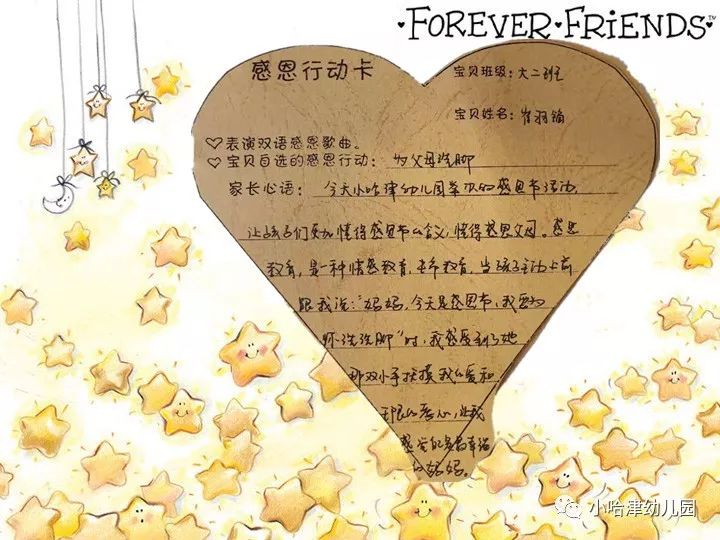 FOREVER FRIENDS™
感恩行动卡
宝贝班级：大二班
宝贝姓名：崔羽
表演双语感恩歌曲。
宝贝自选的感恩行动：为父母洗脚
家长心语：今天小哈津幼儿园举办的感恩节活动，
让孩子们更加懂得感恩节的含义，懂得感恩父母。感恩
教育，是一种情感教育，生命教育，当孩子主动上前
跟我说："妈妈，今天是感恩节，我要为
你洗洗脚"时，我感受到了她
那双小手抚摸我的暖和
的爱心，让我
感觉的是最幸福
的妈妈。
小哈津幼儿园